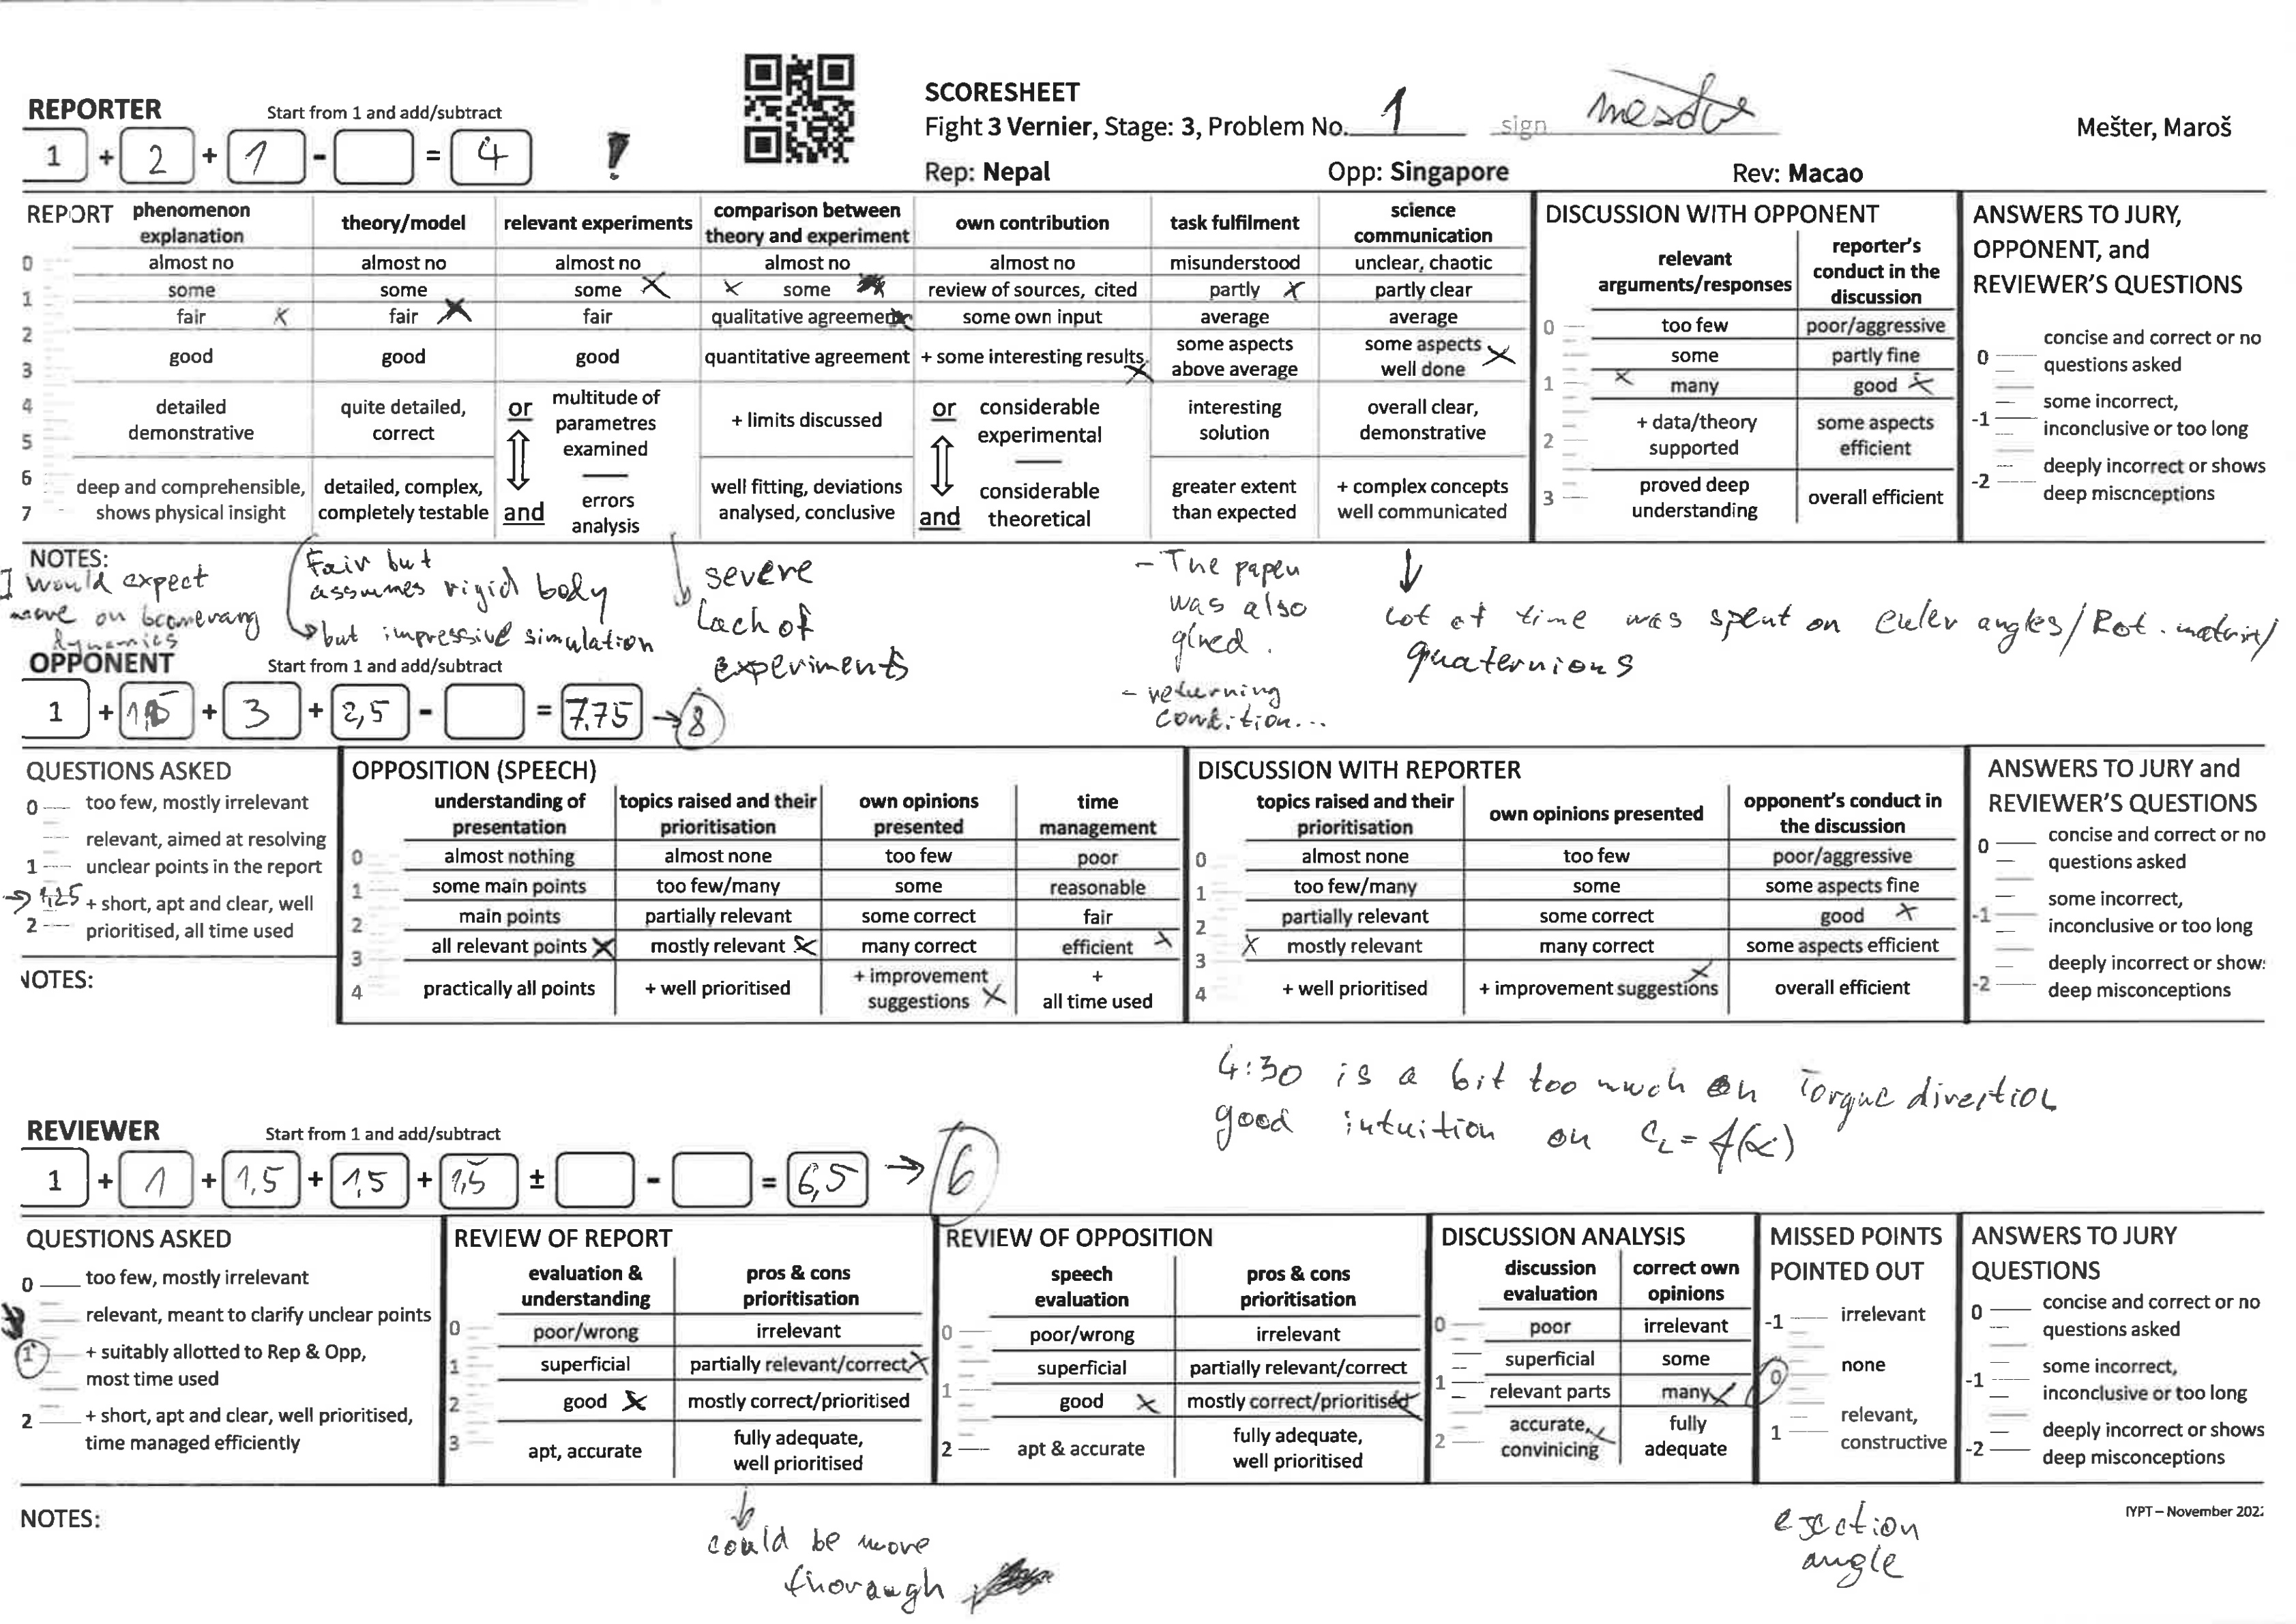 SCORESHEET
Fight 3 Vernier, Stage: 3, Problem No. 1 sign
Mešter, Maroš
Rep: Nepal Opp: Singapore Rev: Macao
REPORTER Start from 1 and add/subtract
1 + 2 + 1 - = 4 !
REPORT
phenomenon explanation
almost no
some
fair x
good
detailed demonstrative
deep and comprehensible, shows physical insight
theory/model
almost no
some
fair x
good
quite detailed, correct
detailed, complex, completely testable
relevant experiments
almost no
some x
fair
good
or multitude of parametres examined
and errors analysis
comparison between theory and experiment
almost no
x some
qualitative agreement
quantitative agreement
+ limits discussed
well fitting, deviations analysed, conclusive
own contribution
almost no
review of sources, cited
some own input
+ some interesting results x
or considerable experimental
and considerable theoretical
task fulfilment
misunderstood
partly x
average
some aspects above average
interesting solution
greater extent than expected
science communication
unclear, chaotic
partly clear
average
some aspects well done x
overall clear, demonstrative
+ complex concepts well communicated
0
1
2
3
4
5
6
7
DISCUSSION WITH OPPONENT
relevant arguments/responses
too few
some
x many
+ data/theory supported
proved deep understanding
reporter's conduct in the discussion
poor/aggressive
partly fine
good x
some aspects efficient
overall efficient
0
1
2
3
ANSWERS TO JURY, OPPONENT, and REVIEWER'S QUESTIONS
0 concise and correct or no questions asked
-1 some incorrect, inconclusive or too long
-2 deeply incorrect or shows deep miscnceptions
NOTES:
I would expect
more on boomerang
dynamics
Fair but
assumes rigid body
but impressive simulation
severe
lack of
experiments
- The paper
was also
glued.
- returning
condition...
Lot of time was spent on Euler angles/Rot. matrix/
quaternions
OPPONENT Start from 1 and add/subtract
1 + + 3 + 2,5 - = 7.75 → 8
QUESTIONS ASKED
0 too few, mostly irrelevant
relevant, aimed at resolving
1 unclear points in the report
→ 1,25 + short, apt and clear, well
2 prioritised, all time used
NOTES:
OPPOSITION (SPEECH)
understanding of presentation
almost nothing
some main points
main points
all relevant points x
practically all points
topics raised and their prioritisation
almost none
too few/many
partially relevant
mostly relevant x
+ well prioritised
own opinions presented
too few
some
some correct
many correct
+ improvement suggestions x
time management
poor
reasonable
fair
efficient x
+ all time used
0
1
2
3
4
DISCUSSION WITH REPORTER
topics raised and their prioritisation
almost none
too few/many
partially relevant
x mostly relevant
+ well prioritised
own opinions presented
too few
some
some correct
many correct
+ improvement suggestions x
opponent's conduct in the discussion
poor/aggressive
some aspects fine
good x
some aspects efficient
overall efficient
0
1
2
3
4
ANSWERS TO JURY and REVIEWER'S QUESTIONS
0 concise and correct or no questions asked
-1 some incorrect, inconclusive or too long
-2 deeply incorrect or show: deep misconceptions
4:30 is a bit too much on Torque direction
good intuition on CL = f(α)
REVIEWER Start from 1 and add/subtract
1 + 1 + 1,5 + 1,5 + 1,5 ± - = 6,5 → 6
QUESTIONS ASKED
0 too few, mostly irrelevant
relevant, meant to clarify unclear points
1 + suitably allotted to Rep & Opp,
most time used
2 + short, apt and clear, well prioritised,
time managed efficiently
NOTES:
REVIEW OF REPORT
evaluation & understanding
poor/wrong
superficial
good x
apt, accurate
pros & cons prioritisation
irrelevant
partially relevant/correct x
mostly correct/prioritised
fully adequate, well prioritised
0
1
2
3
could be more
thorough
REVIEW OF OPPOSITION
speech evaluation
poor/wrong
superficial
good x
apt & accurate
pros & cons prioritisation
irrelevant
partially relevant/correct
mostly correct/prioritised x
fully adequate, well prioritised
0
1
2
DISCUSSION ANALYSIS
discussion evaluation
poor
superficial
relevant parts
accurate, convinicing x
correct own opinions
irrelevant
some
many x
fully adequate
0
1
2
MISSED POINTS POINTED OUT
-1 irrelevant
0 none
1 relevant, constructive
ejection
angle
ANSWERS TO JURY QUESTIONS
0 concise and correct or no questions asked
-1 some incorrect, inconclusive or too long
-2 deeply incorrect or shows deep misconceptions
IYPT – November 202